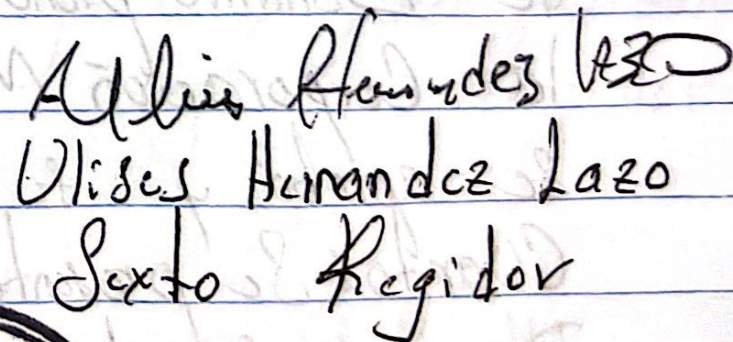 Hernandez Lazo
Ulises Hernandez Lazo
Sexto Regidor